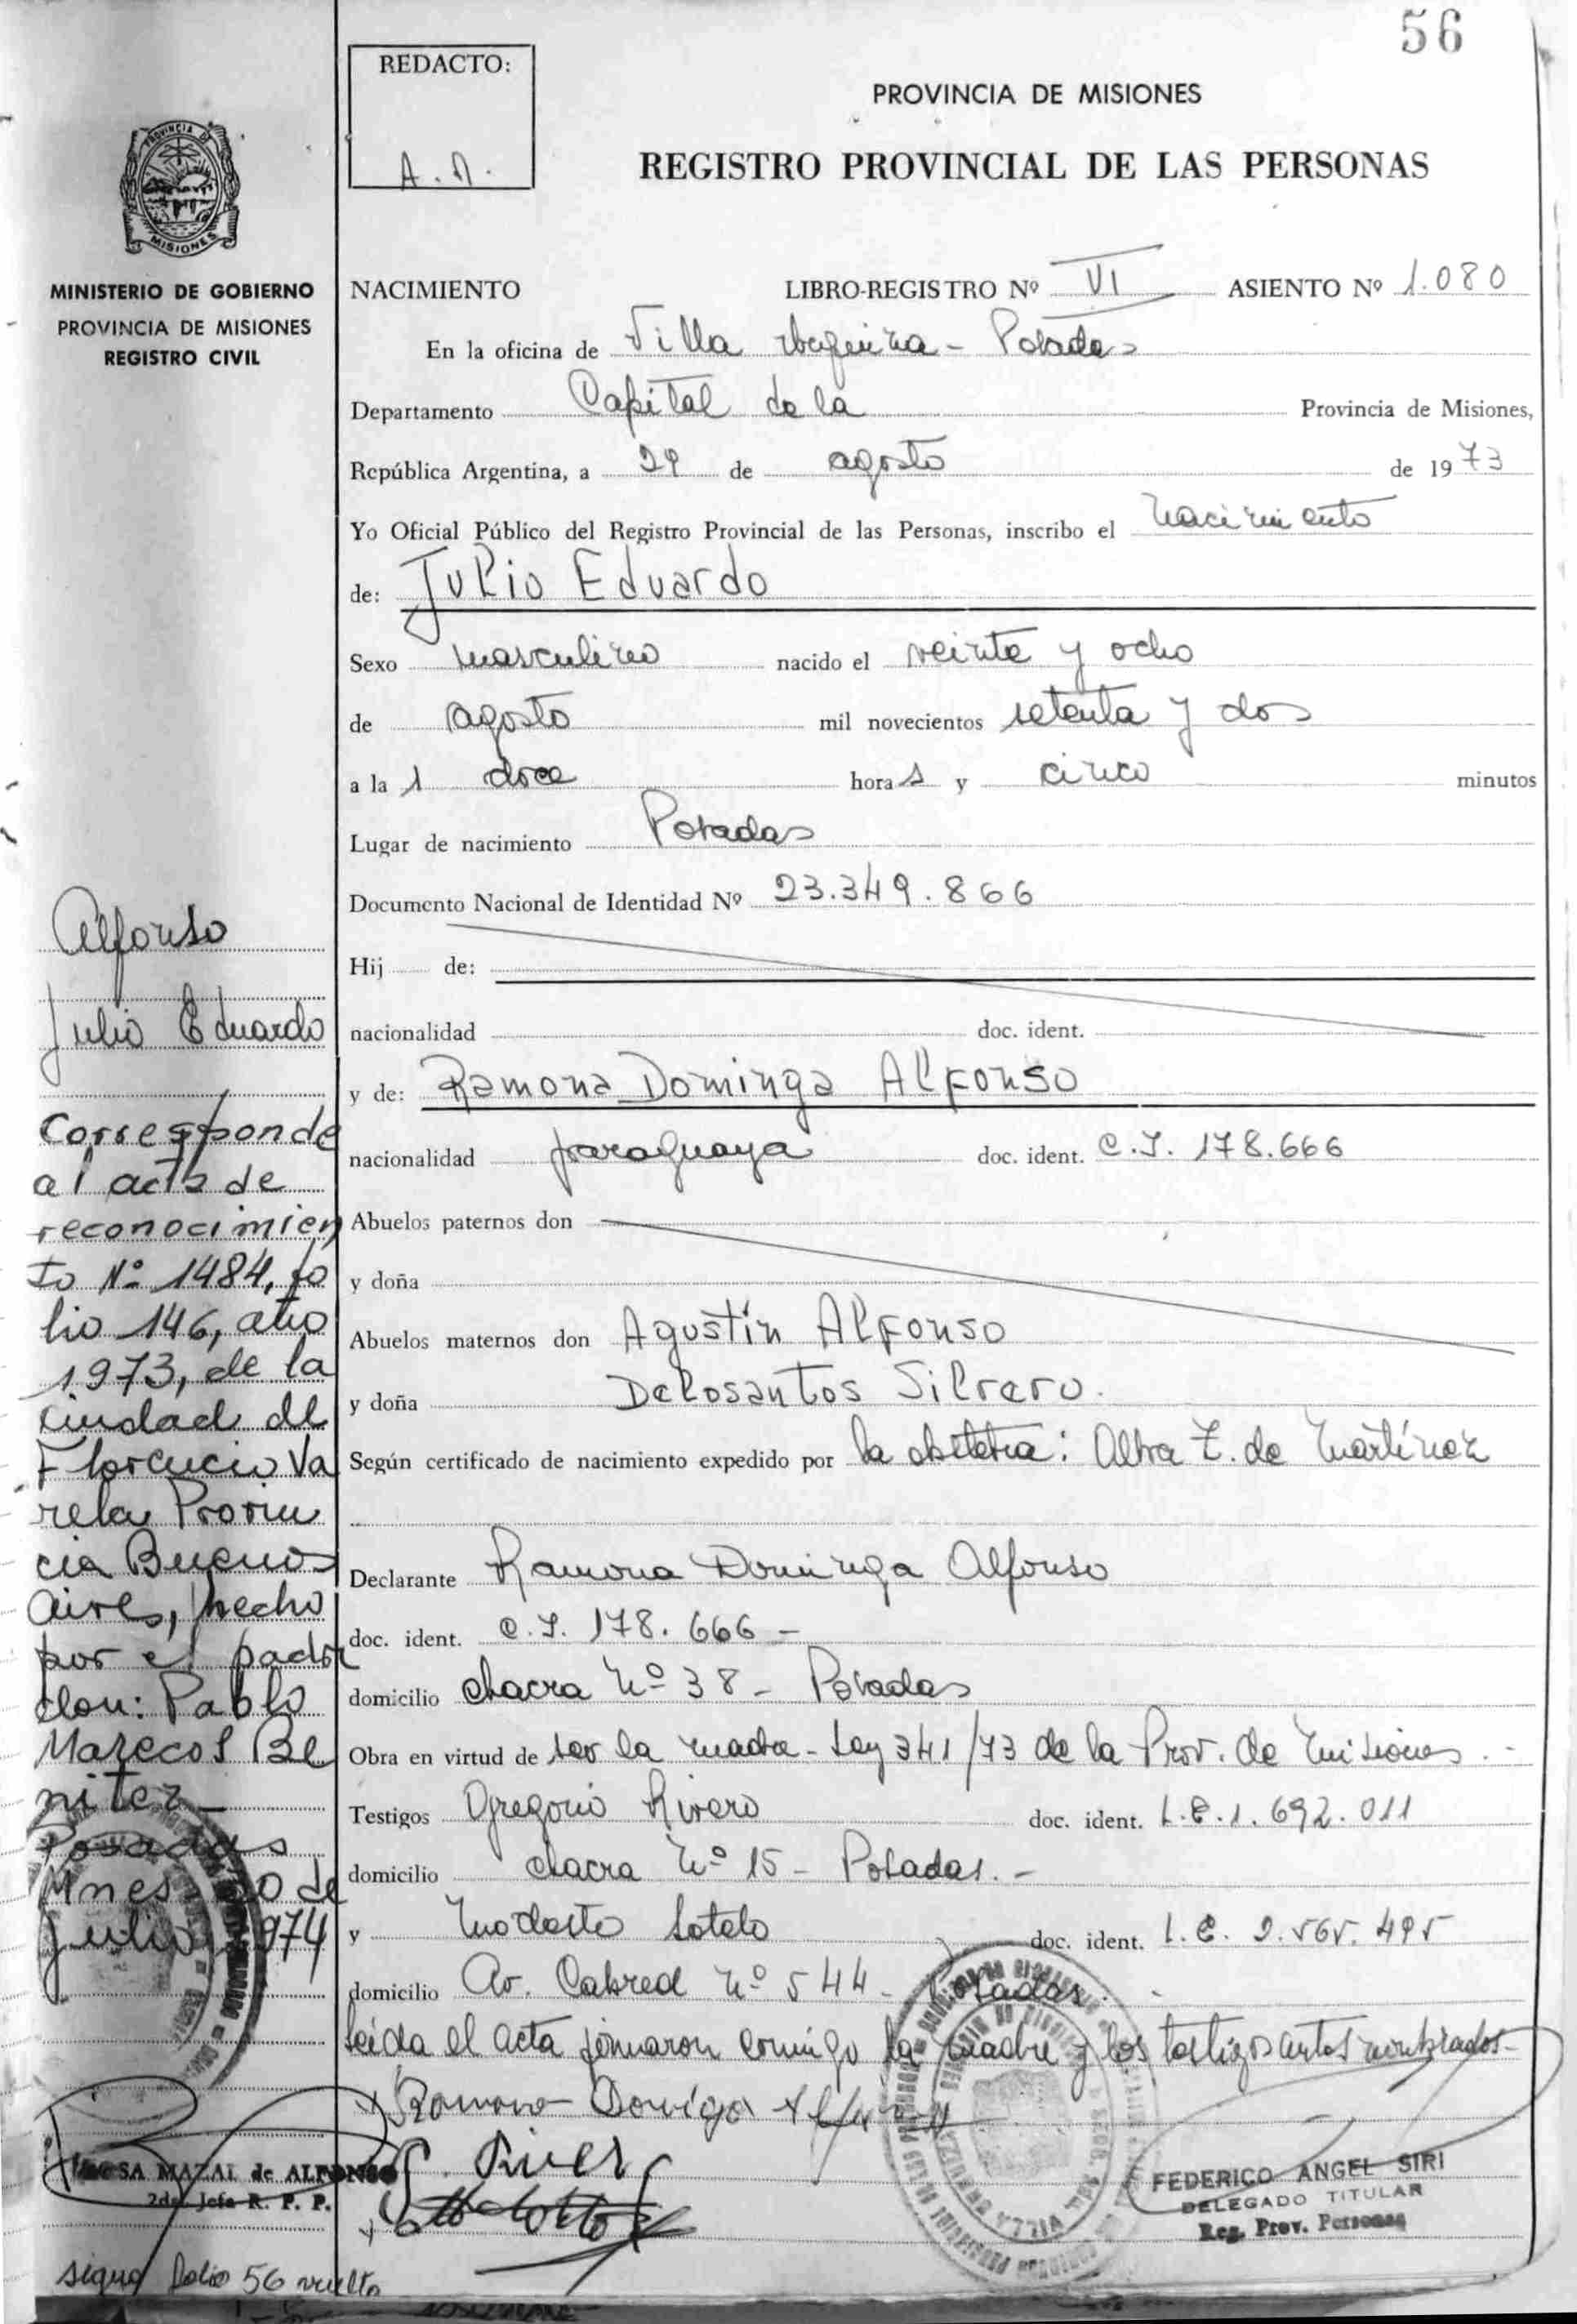 56
REDACTO:
A. A.
PROVINCIA DE MISIONES
REGISTRO PROVINCIAL DE LAS PERSONAS
PROVINCIA DE
MISIONES
MINISTERIO DE GOBIERNO
PROVINCIA DE MISIONES
REGISTRO CIVIL
NACIMIENTO LIBRO-REGISTRO Nº VI ASIENTO Nº 1.080
En la oficina de Villa - Posadas
Departamento Capital de la Provincia de Misiones,
República Argentina, a 29 de agosto de 1973
Yo Oficial Público del Registro Provincial de las Personas, inscribo el nacimiento
de: Julio Eduardo
Sexo masculino nacido el veinte y ocho
de agosto mil novecientos setenta y dos
a la s doce hora s y cinco minutos
Lugar de nacimiento Posadas
Documento Nacional de Identidad Nº 23.349.866
Hij de:
nacionalidad doc. ident.
y de: Ramona Dominga Alfonso
nacionalidad paraguaya doc. ident. C.I. 178.666
Abuelos paternos don
y doña
Abuelos maternos don Agustín Alfonso
y doña Delosantos Silvero.
Según certificado de nacimiento expedido por la obstetra: Alba Z. de Martínez
Declarante Ramona Dominga Alfonso
doc. ident. C.I. 178.666 -
domicilio chacra Nº 38 - Posadas
Obra en virtud de ser la madre - Ley 341/73 de la Prov. de Misiones. -
Testigos Gregorio Rivero doc. ident. L.E. 1.692.011
domicilio chacra Nº 15 - Posadas. -
y Modesto Sotelo doc. ident. L.E. 2.565.495
domicilio Av. Cabred Nº 544 - Posadas. -
Leida el acta firmaron comigo la madre y los testigos antes nombrados -
Ramona Dominga Alfonso
G. River
FEDERICO ANGEL SIRI
DELEGADO TITULAR
Reg. Prov. Personas
Alfonso
Julio Eduardo
Corresponde
al acta de
reconocimien
to Nº 1484, fo
lio 146, año
1973, de la
ciudad de
Florencio Va
rela Provin
cia Buenos
Aires, hecho
por el padre
don: Pablo
Marecos Be
nitez -
Posadas
Mnes, de
julio 1974
ROSA MAZAL de ALFONSO
2da Jefa R. P. P.
sigue folio 56 vuelto